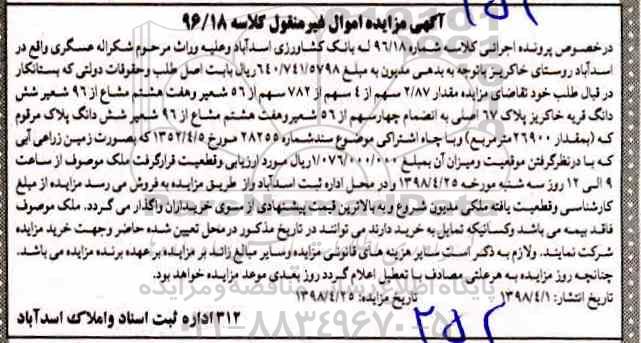 آگهی مزایده اموال غیرمنقول کلاسه ۹۶/۱۸
درخصوص پرونده اجرائی کلاسه شماره ۹۶/۱۸ له بانک کشاورزی اسدآباد وعلیه وراث مرحوم شکراله عسگری واقع در
اسدآباد روستای خاکریز باتوجه به بدهی مدیون به مبلغ ۶۴۰/۷۴۱/۵۷۹۸ریال بابت اصل طلب وحقوقات دولتی که بستانکار
در قبال طلب خود تقاضای مزایده مقدار ۲/۸۷ سهم از ۴ سهم از ۷۸۲ سهم از ۵۶ شعیر وهفت هشتم مشاع از ۹۶ شعیر شش
دانگ قریه خاکریز پلاک ۶۷ اصلی به انضمام چهارسهم از ۵۶ شعیر وهفت هشتم مشاع از ۹۶ شعیر شش دانگ پلاک مرقوم
که (بمقدار ۲۶۹۰۰ مترمربع) وبا چاه اشتراکی موضوع سندشماره ۲۸۲۵۵ مورخ ۱۳۵۲/۴/۵ که بصورت زمین زراعی آبی
که با درنظرگرفتن موقعیت ومیزان آن بمبلغ ۱/۰۷۶/۰۰۰/۰۰۰ریال مورد ارزیابی وقطعیت قرارگرفت ملک موصوف از ساعت
۹ الی ۱۲ روز سه شنبه مورخه ۱۳۹۸/۴/۲۵ و در محل اداره ثبت اسدآباد واز طریق مزایده به فروش می رسد مزایده از مبلغ
کارشناسی وقطعیت یافته ملکی مدیون شروع و به بالاترین قیمت پیشنهادی از سوی خریداران واگذار می گردد. ملک موصوف
فاقد بیمه می باشد وکسانیکه تمایل به خرید دارند می توانند در تاریخ مذکور در محل تعیین شده حاضر وجهت خرید مزایده
شرکت نمایند. ولازم به ذکر است سایر هزینه های قانونی مزایده وسایر مبالغ زائد بر مزایده بر عهده برنده مزایده می باشد.
چنانچه روز مزایده به هرعلتی مصادف با تعطیل اعلام گردد روز بعدی موعد مزایده خواهد بود.
تاریخ انتشار: ۱۳۹۸/۴/۱ تاریخ مزایده: ۱۳۹۸/۴/۲۵
۳۱۲ اداره ثبت اسناد واملاک اسدآباد
پایگاه اطلاع رسانی مناقصه و مزایده